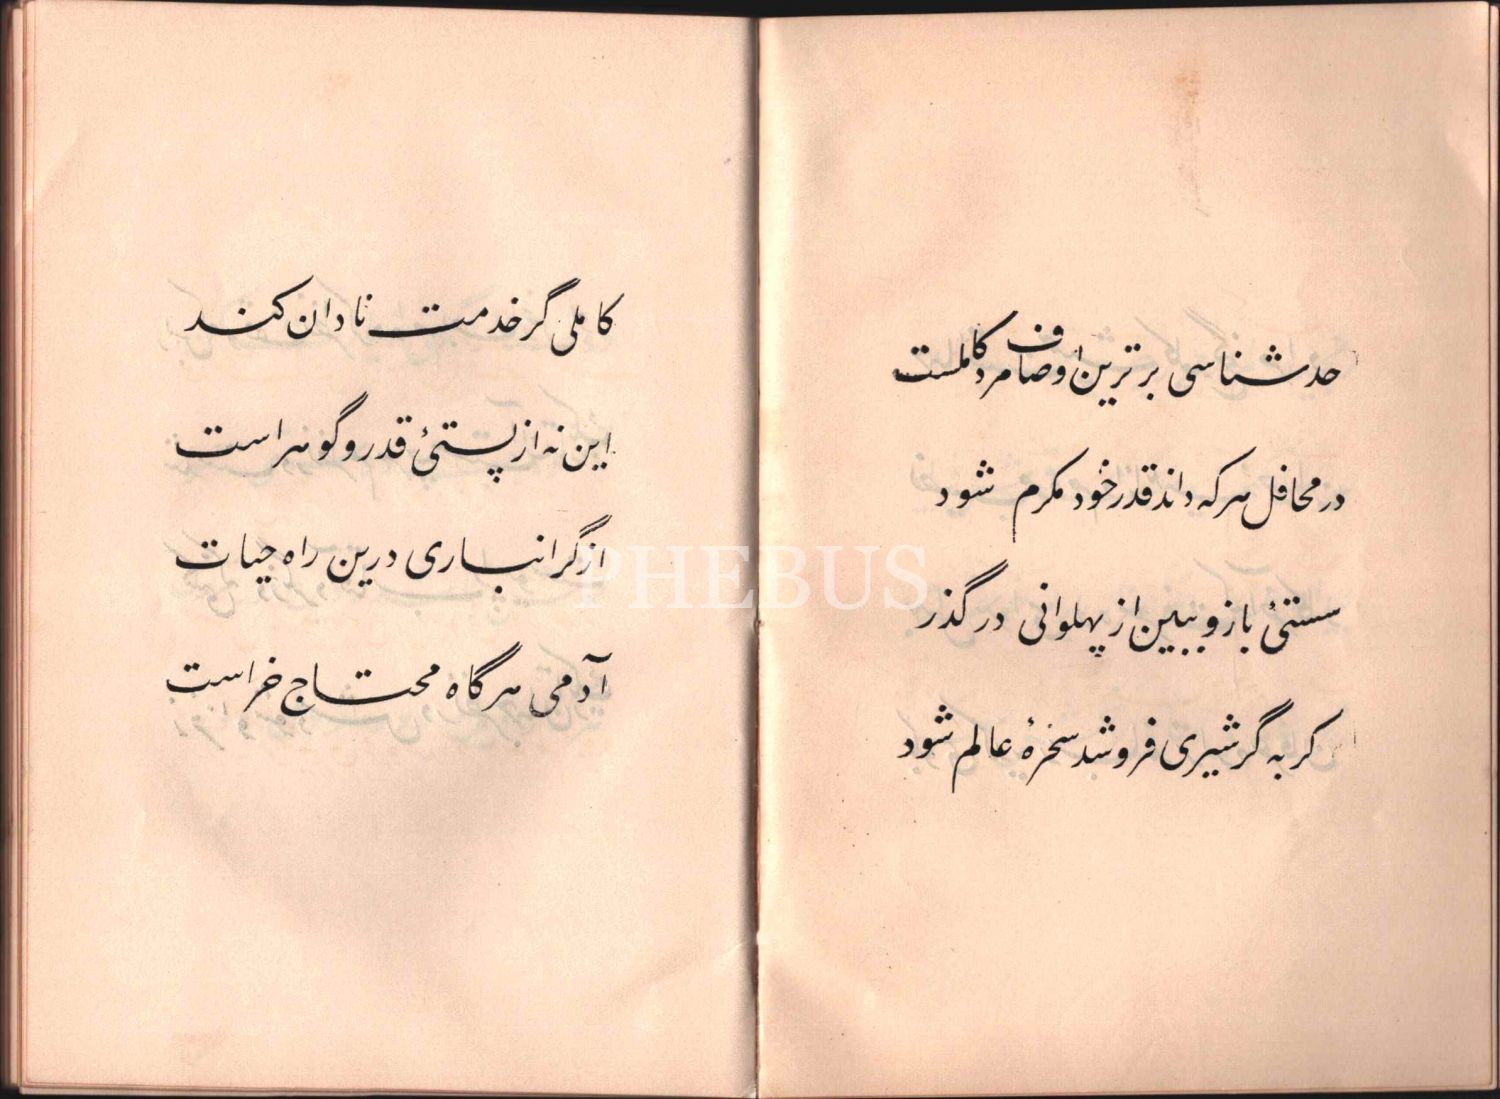 حد شناسی برترین اوصاف مرد کاملست
در محافل هر که داند قدر خود مکرم شود
سستیٔ بازو ببین از پهلوانی در گذر
کربه گر شیری فروشد سخرهٔ عالم شود
کاملی گر خدمت نادان کند
این نه از پستیٔ قدر و گوهر است
از گرانباری درین راه حیات
آدمی هر گاه محتاج خر است
PHEBUS